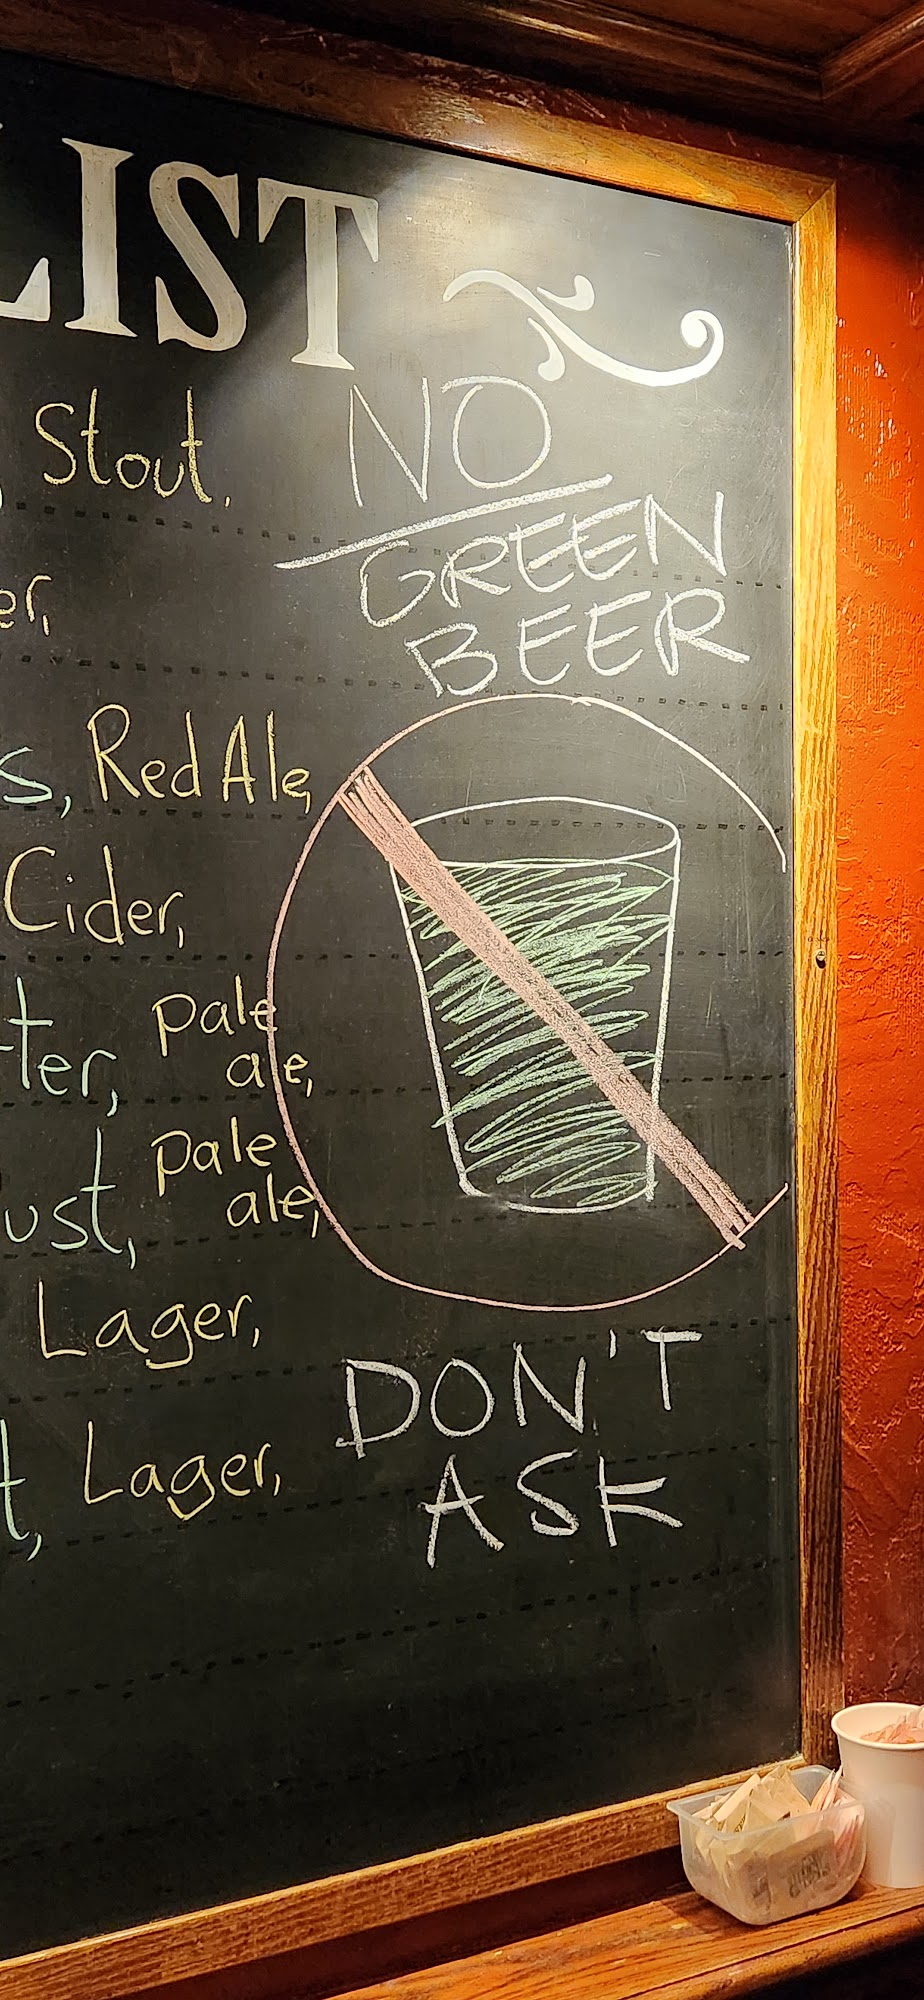 LIST
Stout,
NO
GREEN
BEER
Red Ale,
Cider,
Pale
ale,
Pale
ale,
Lager,
DON'T
Lager,
ASK